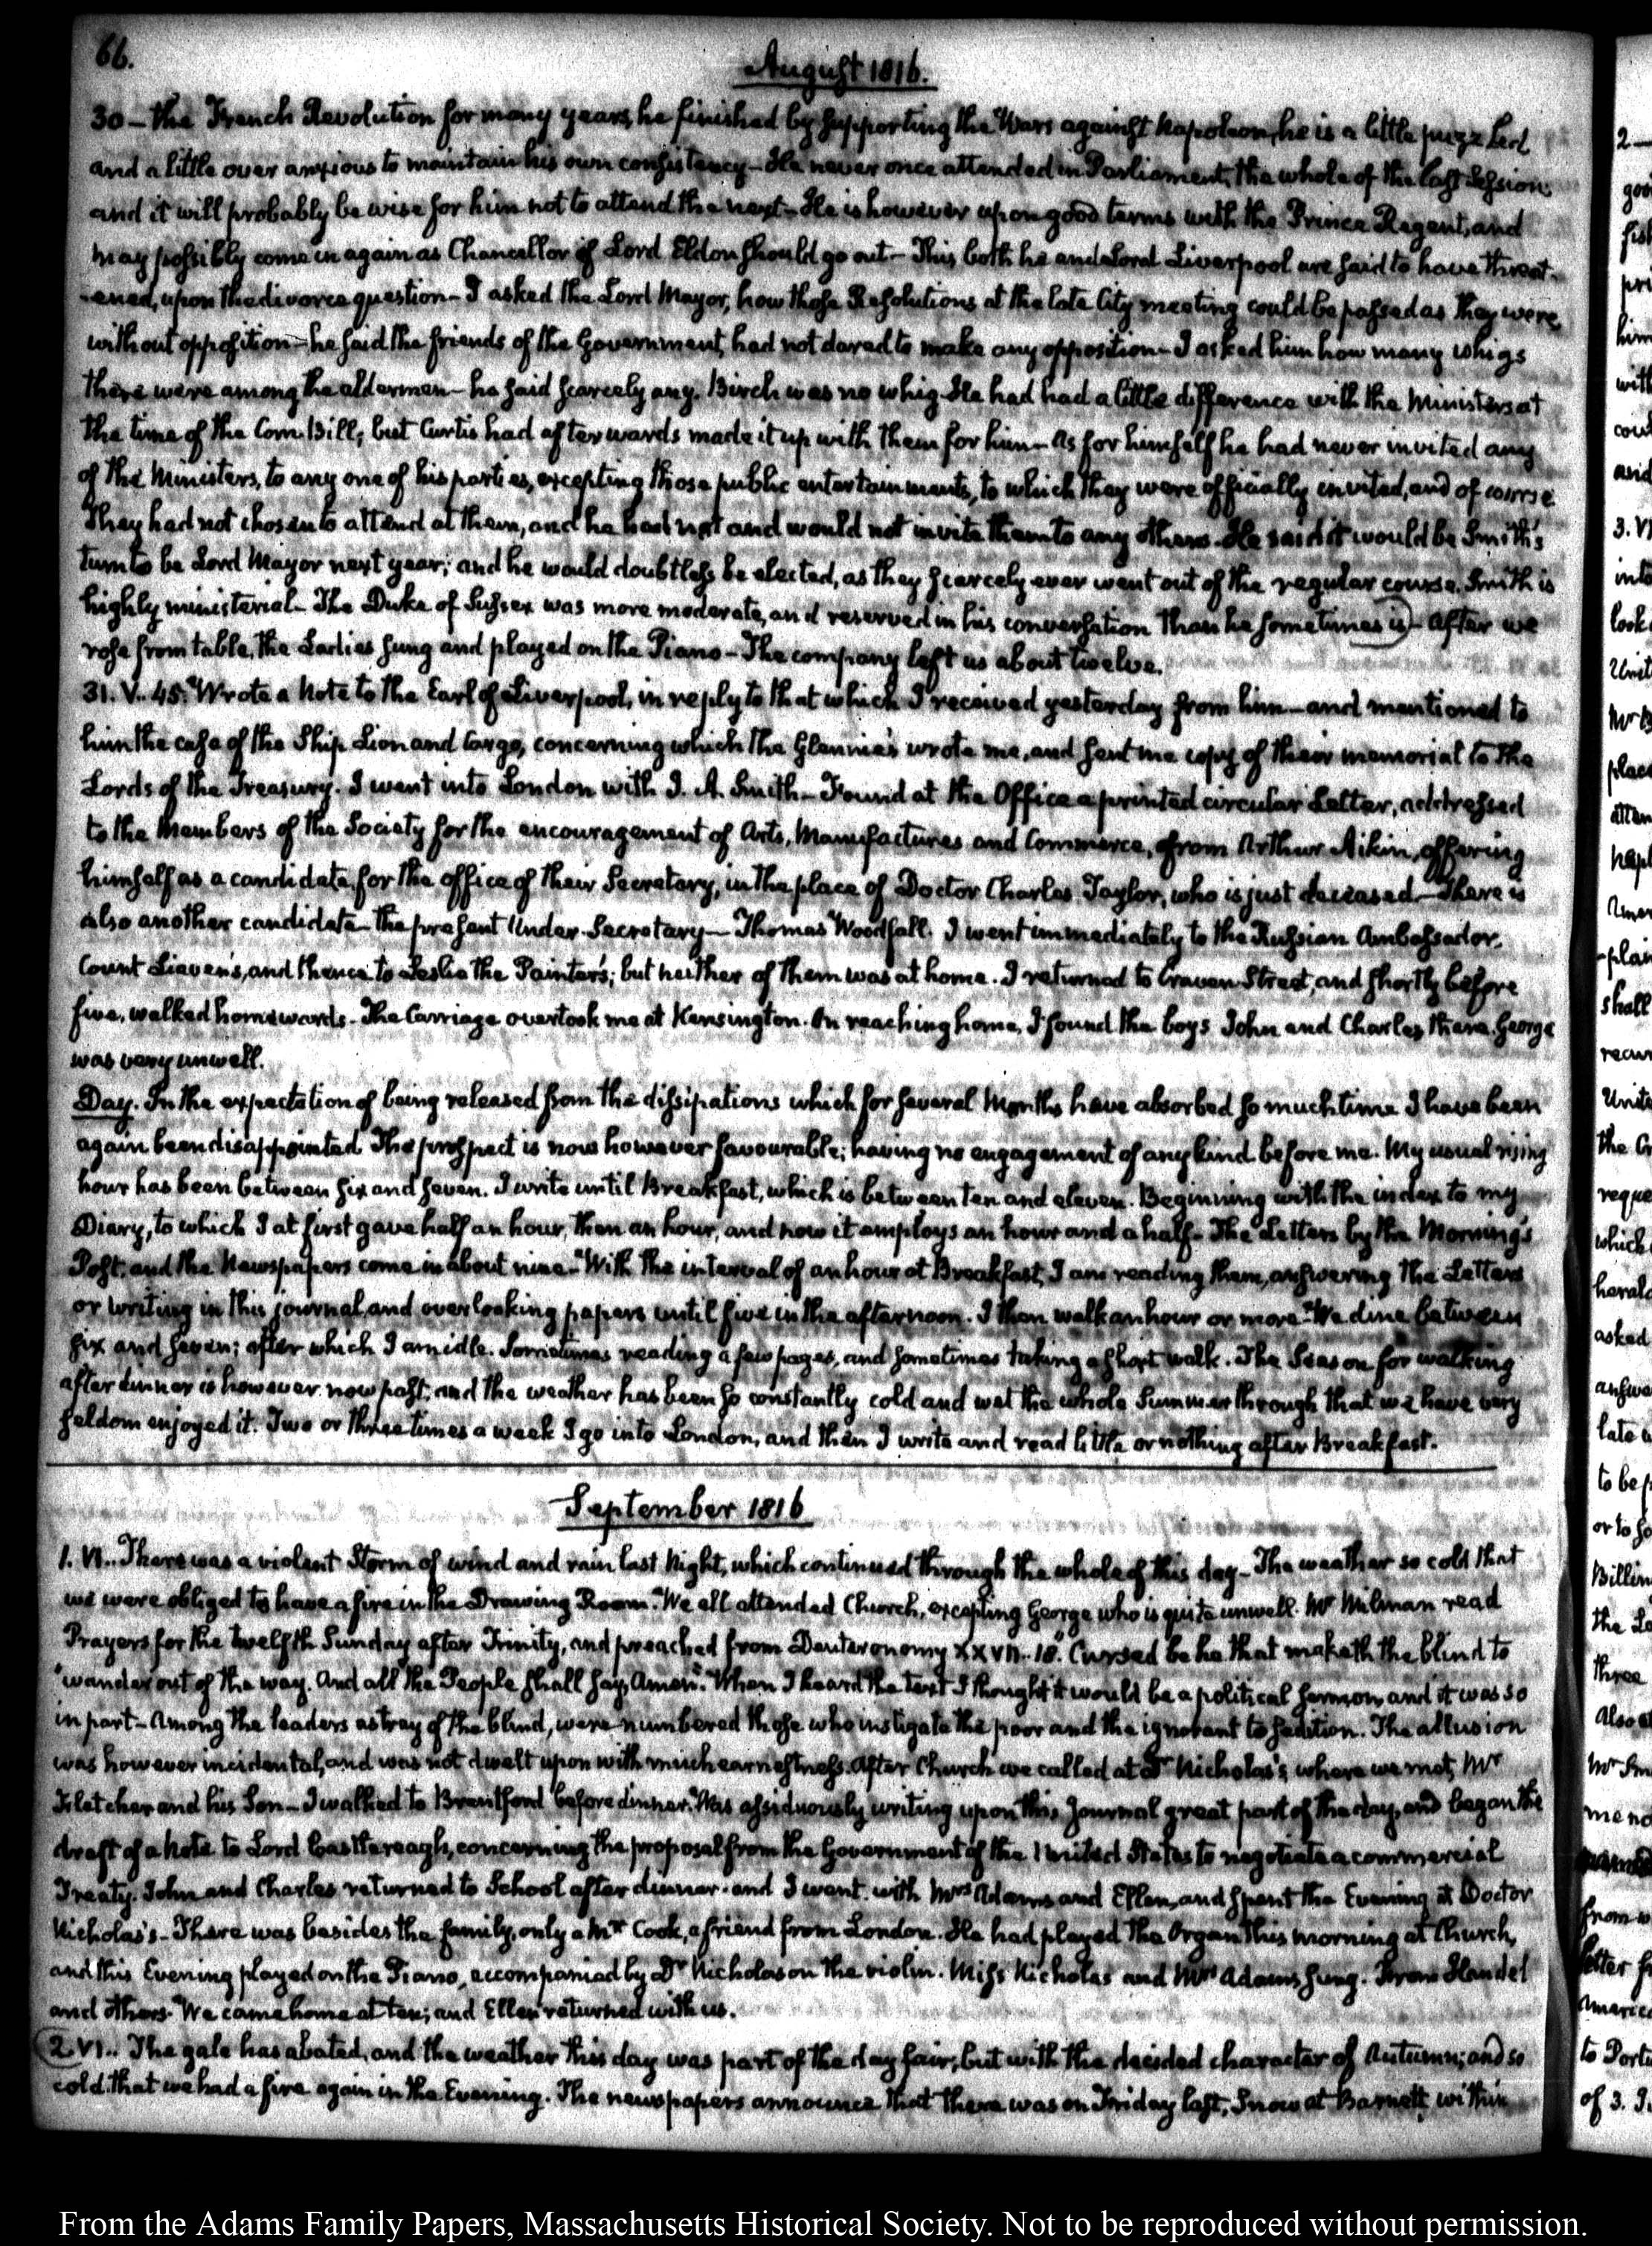 66.
August 1816.
30 — the French Revolution for many years, he finished by supporting the Wars against Napoleon, he is a little puzzled
and a little over anxious to maintain his own consistency — He never once attended in Parliament, the whole of the last Session,
and it will probably be wise for him not to attend the next — He is however upon good terms with the Prince Regent, and
may possibly come in again as Chancellor if Lord Eldon should go out — This, both he and Lord Liverpool are said to have threat-
-ened, upon the divorce question — I asked the Lord Mayor, how those Resolutions at the late City meeting could be passed as they were,
without opposition — he said the friends of the Government, had not dared to make any opposition — I asked him how many Whigs
there were among the aldermen — he said scarcely any. Birch was no whig — He had had a little difference with the Ministers at
the time of the Corn Bill; but Curtis had afterwards made it up with them for him — As for himself he had never invited any
of the Ministers, to any one of his parties, excepting those public entertainments, to which they were officially invited, and of course
they had not chosen to attend at them, and he had not and would not invite them to any others. He said it would be Smith's
turn to be Lord Mayor next year; and he would doubtless be elected, as they scarcely ever went out of the regular course. Smith is
highly ministerial — The Duke of Sussex was more moderate, and reserved in his conversation than he sometimes is — After we
rose from table, the Ladies sung and played on the Piano — The company left us about twelve.
31. V.. 45. Wrote a Note to the Earl of Liverpool, in reply to that which I received yesterday from him — and mentioned to
him the case of the Ship Lion and Cargo, concerning which the Glennie's wrote me, and sent me copy of their memorial to the
Lords of the Treasury. I went into London with J. A. Smith — Found at the Office a printed circular Letter, addressed
to the Members of the Society for the encouragement of Arts, Manufactures and Commerce, from Arthur Aikin, offering
himself as a candidate, for the office of their Secretary, in the place of Doctor Charles Taylor, who is just deceased — There is
also another candidate — the present Under-Secretary — Thomas Woodfall. I went immediately to the Russian Ambassador,
Count Lieven's, and thence to Leslie the Painter's; but neither of them was at home. I returned to Craven Street, and shortly before
five, walked homewards. The Carriage overtook me at Kensington. On reaching home, I found the boys John and Charles there. George
was very unwell.
Day. In the expectation of being released from the dissipations which for several Months have absorbed so much time I have been
again been disappointed. The prospect is now however favourable; having no engagement of any kind before me. My usual rising
hour has been between six and seven. I write until Breakfast, which is between ten and eleven. Beginning with the index to my
Diary, to which I at first gave half an hour, then an hour, and now it employs an hour and a half — The Letters by the Morning's
Post, and the Newspapers come in about nine — With the interval of an hour at Breakfast, I am reading them, answering the Letters
or writing in this journal, and overlooking papers until five in the afternoon. I then walk an hour or more — We dine between
six and seven; after which I am idle. Sometimes reading a few pages, and sometimes taking a short walk. The Season for walking
after dinner is however now past; and the weather has been so constantly cold and wet the whole Summer through that we have very
seldom enjoyed it. Two or three times a week I go into London, and then I write and read little or nothing after Breakfast.
September 1816
1. VI.. There was a violent Storm of wind and rain last Night, which continued through the whole of this day — The weather so cold that
we were obliged to have a fire in the Drawing Room. We all attended Church, excepting George who is quite unwell. Mr Milman read
Prayers for the twelfth Sunday after Trinity, and preached from Deuteronomy XXVII.. 18. "Cursed be he that maketh the blind to
"wander out of the way. And all the People shall say, Amen." When I heard the text I thought it would be a political sermon, and it was so
in part — Among the leaders astray of the blind, were numbered those who instigate the poor and the ignorant to sedition. The allusion
was however incidental, and was not dwelt upon with much earnestness. After Church we called at Dr Nicholas's, where we met, Mr
Fletcher and his Son — I walked to Brentford before dinner. Was assiduously writing upon this Journal great part of the day, and began the
draft of a Note to Lord Castlereagh, concerning the proposal from the Government of the United States to negotiate a commercial
Treaty. John and Charles returned to School after dinner, and I went, with Mrs Adams and Ellen, and spent the Evening at Doctor
Nicholas's — There was besides the family, only a Mr Cook, a friend from London. He had played the Organ this morning at Church,
and this Evening played on the Piano, accompanied by Dr Nicholas on the violin. Miss Nicholas and Mrs Adams sung. From Handel
and others. We came home at ten; and Ellen returned with us.
2 VI.. The gale has abated, and the weather this day was part of the day fair; but with the decided character of Autumn; and so
cold that we had a fire again in the Evening. The newspapers announce that there was on Friday last, Snow at Barnett, within
From the Adams Family Papers, Massachusetts Historical Society. Not to be reproduced without permission.